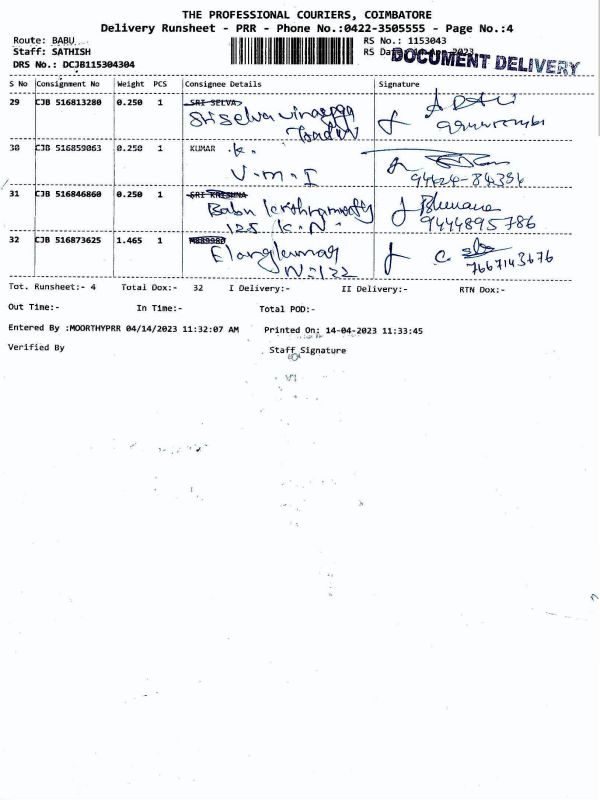 THE PROFESSIONAL COURIERS, COIMBATORE
Delivery Runsheet - PRR - Phone No.:0422-3505555 - Page No.:4
Route: BABU RS No.: 1153043
Staff: SATHISH RS Da 2023
DOCUMENT DELIVERY
DRS No.: DCJB115304304
S No Consignment No Weight PCS Consignee Details Signature
29 CJB 516813280 0.250 1 SRI SELVA
Sri Selva vinayaga
30 CJB 516859063 0.250 1 KUMAR .K.
V.M.I 94424-84354
31 CJB 516846860 0.250 1 SRI KRISHNA
Babu krishnamoorthy
125 K.N. 9444895786
32 CJB 516873625 1.465 1 M889980
Elangkumar
N=122 7667143676
Tot. Runsheet:- 4 Total Dox:- 32 I Delivery:- II Delivery:- RTN Dox:-
Out Time:- In Time:- Total POD:-
Entered By :MOORTHYPRR 04/14/2023 11:32:07 AM Printed On: 14-04-2023 11:33:45
Verified By Staff Signature